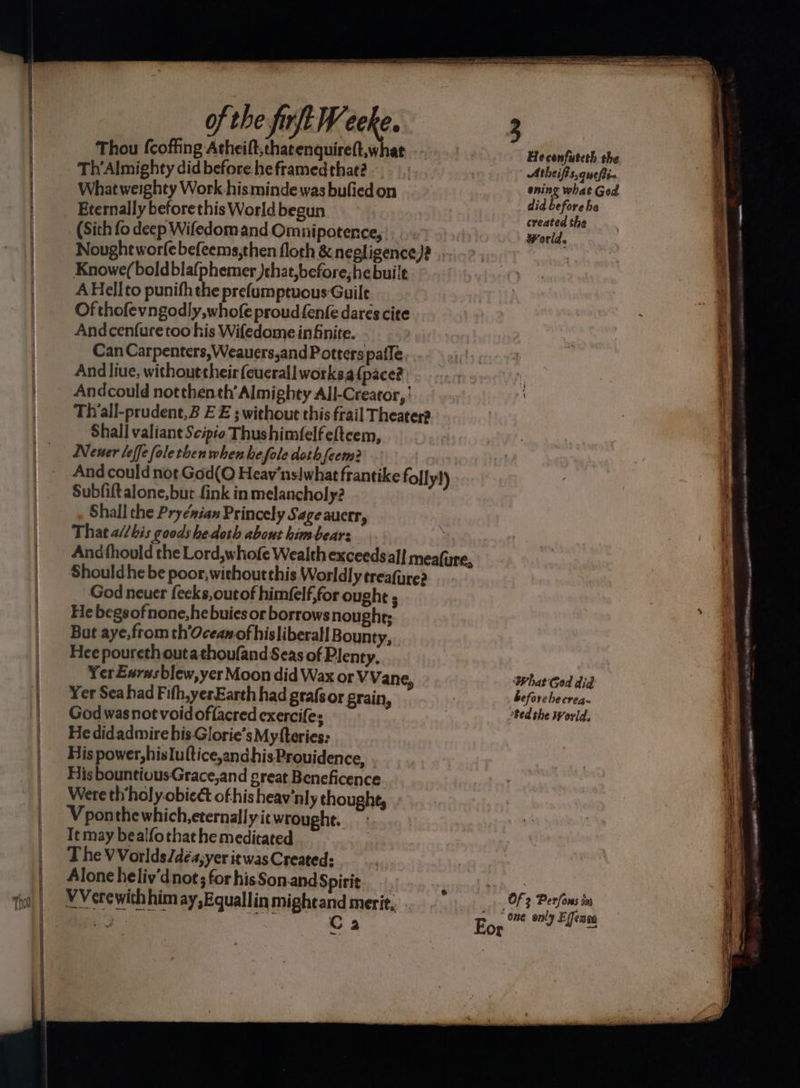 of the first Weeke.
3
Thou scoffing Atheist, that enquirest, what
Th'Almighty did before he framed that?
What weighty Work his minde was busied on
Eternally before this World begun
(Sith so deep Wisedom and Omnipotence,
Nought worse beseems, then sloth & negligence)?
Knowe (bold blasphemer) that, before, he built
A Hell to punish the presumptuous Guilt
Of those vngodly, whose proud sense dares cite
And censure too his Wisedome infinite.
Can Carpenters, Weauers, and Potters passe
And liue, without their seuerall works a space?
And could not then th'Almighty All-Creator,
Th'all-prudent, BEE; without this frail Theater?
Shall valiant Scipio Thus himself esteem,
Neuer lesse sole then when he sole doth seem?
And could not God (O Heav'ns! what frantike folly!)
Subsist alone, but sink in melancholy?
Shall the Pryénian Princely Sage auerr,
That all his goods he doth about him bear:
And should the Lord, whose Wealth exceeds all measure,
Should he be poor, without this Worldly treasure?
God neuer seeks, out of himself, for ought;
He begs of none, he buies or borrows nought;
But aye, from th'Ocean of his liberall Bounty,
Hee poureth out a thousand Seas of Plenty.
Yer Eurus blew, yer Moon did Wax or VVane,
Yer Sea had Fish, yer Earth had grass or grain,
God was not void of sacred exercise;
He did admire his Glorie's Mysteries:
His power, his Iustice, and his Prouidence,
His bountious Grace, and great Beneficence
Were th'holy obiect of his heav'nly thought,
Vpon the which, eternally it wrought.
It may be also that he meditated
The VVorlds Idéa, yer it was Created:
Alone he liv'd not; for his Son and Spirit
VVere with him ay, Equall in might and merit.
C 2
For
He confuteth the
Atheists, questi-
oning what God
did before he
created the
World.
What God did
before he crea-
ted the World.
Of 3 Persons in
one only Essence